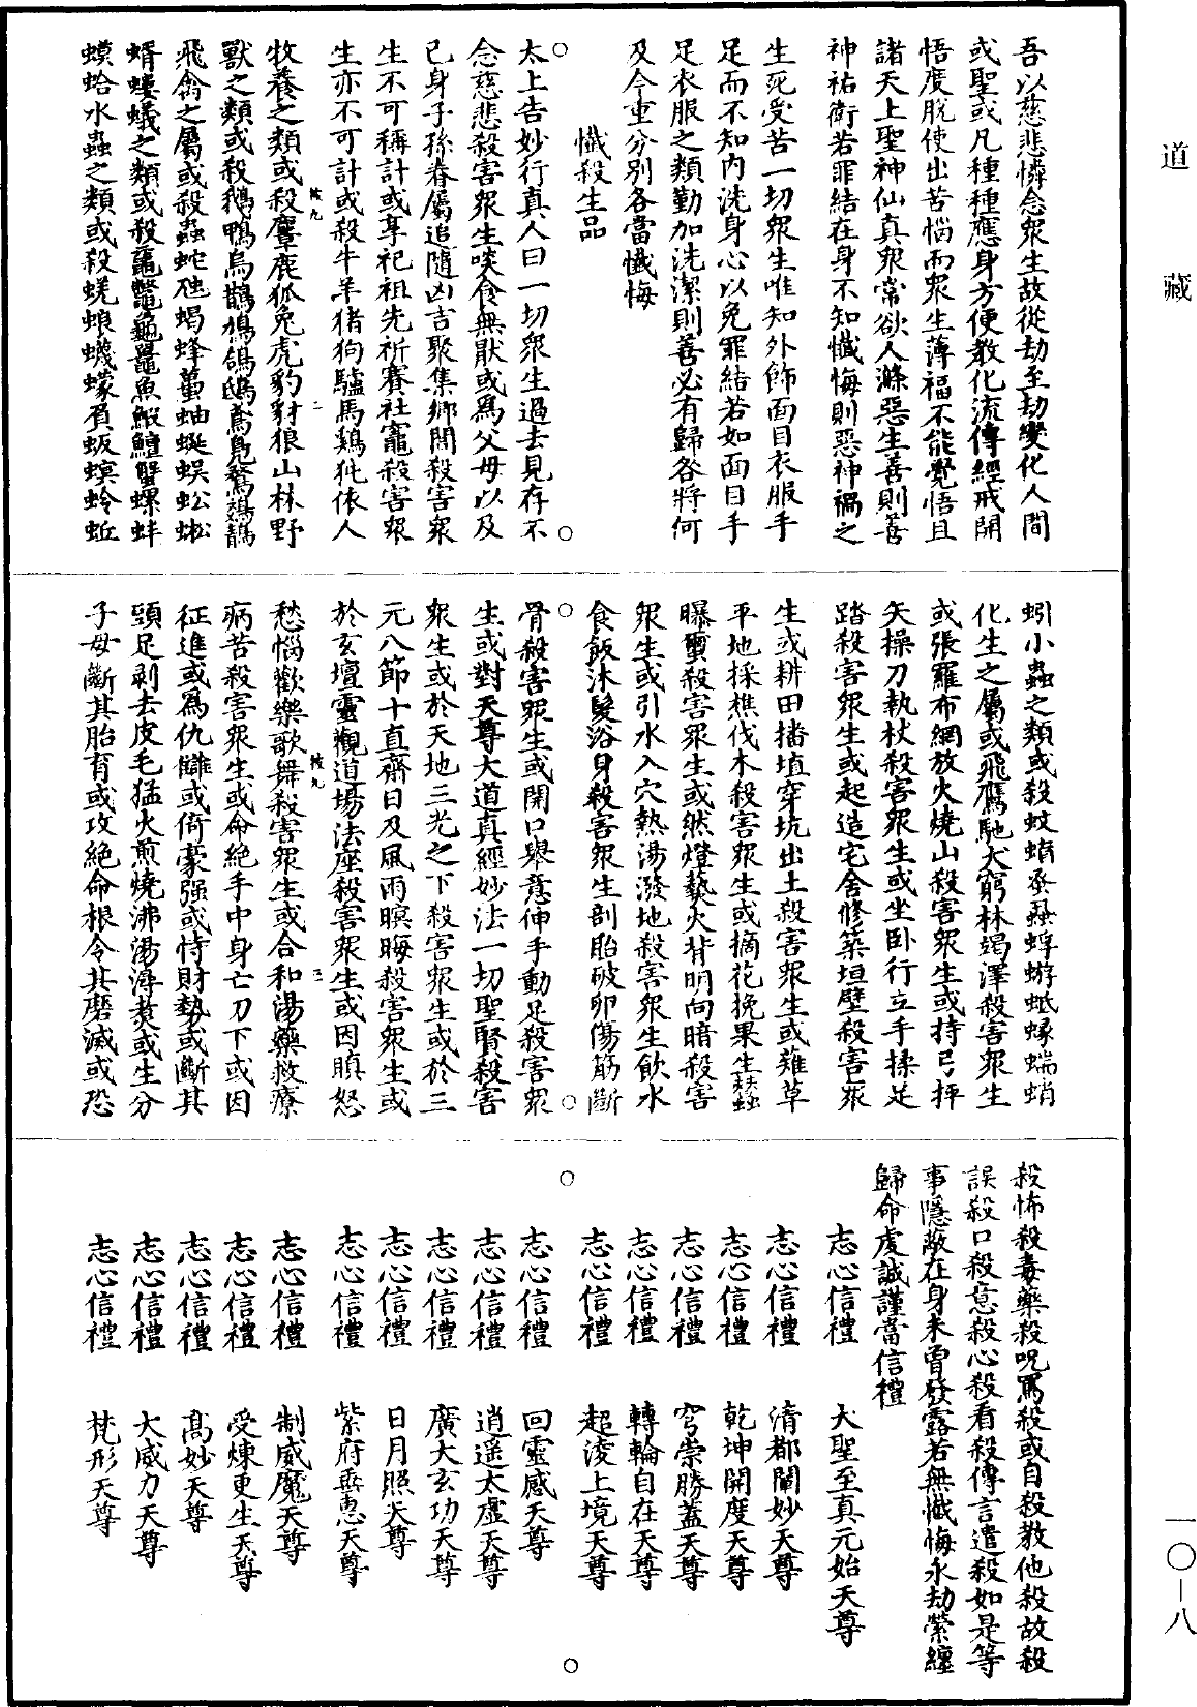 道藏
一〇—八
吾以慈悲憐念衆生故從劫至劫變化人間
或聖或凡種種應身方便教化流傳經戒開
悟度脱使出苦惱而衆生薄福不能覺悟且
諸天上聖神仙真衆常欲人滌惡生善則善
神祐衛若罪結在身不知懺悔則惡神禍之
生死受苦一切衆生唯知外飾面目衣服手
足而不知内洗身心以免罪結若如面目手
足衣服之類勤加洗潔則善必有歸咎將何
及今重分别各當懺悔
懺殺生品
太上告妙行真人曰一切衆生過去見存不
念慈悲殺害衆生啖食無猒或爲父母以及
已身子孫眷屬追隨凶吉聚集鄉閭殺害衆
生不可稱計或享祀祖先祈賽社竈殺害衆
生亦不可計或殺牛羊猪狗驢馬鷄㹠依人
牧養之類或殺麞鹿狐兔虎豹豺狼山林野
獸之類或殺鵝鴨烏鵲鳩鴿鴟鳶鳧鶩鷄鶻
飛禽之屬或殺蟲蛇虺蝎蜂蠆蚰蜒蜈蚣蜥
蝑螻蟻之類或殺黿鼈龜鼉魚鰕鱣蟹螺蚌
蟆蛤水蟲之類或殺蜣蜋蠛蠓𧈢蝂螟蛉蚯
蚓小蟲之類或殺蚊蛸蚤蝨蜉蝣蚳蝝蝡蛸
化生之屬或飛鷹馳犬窮林竭澤殺害衆生
或張羅布網放火燒山殺害衆生或持弓抨
矢操刀執杖殺害衆生或坐卧行立手揉足
踏殺害衆生或起造宅舍修築垣壁殺害衆
生或耕田播埴穿坑出土殺害衆生或薙草
平地採樵伐木殺害衆生或摘花挽果生蠶
曝蠒殺害衆生或然燈爇火背明向暗殺害
衆生或引水入穴熱湯潑地殺害衆生飲水
食飯沐髮浴身殺害衆生剖胎破卵傷筋斷
骨殺害衆生或開口舉意伸手動足殺害衆
生或對天尊大道真經妙法一切聖賢殺害
衆生或於天地三光之下殺害衆生或於三
元八節十直齋日及風雨暝晦殺害衆生或
於玄壇靈觀道場法座殺害衆生或因瞋怒
愁惱歡樂歌舞殺害衆生或合和湯藥救療
病苦殺害衆生或命絶手中身亡刀下或因
征進或爲仇讎或倚豪强或恃財勢或斷其
頭足剥去皮毛猛火煎燒沸湯潯煮或生分
子母斷其胎育或攻絶命根令其磨滅或恐
殺怖殺毒藥殺呪罵殺或自殺教他殺故殺
誤殺口殺意殺心殺看殺傳言遣殺如是等
事隱蔽在身未曾發露若無懺悔永劫縈纏
歸命虔誠謹當信禮
志心信禮 大聖至真元始天尊
志心信禮 清都闡妙天尊
志心信禮 乾坤開度天尊
志心信禮 穹崇勝蓋天尊
志心信禮 轉輪自在天尊
志心信禮 超淩上境天尊
志心信禮 回靈感天尊
志心信禮 逍遥太虚天尊
志心信禮 廣大玄功天尊
志心信禮 日月照天尊
志心信禮 紫府垂惠天尊
志心信禮 制威魔天尊
志心信禮 受煉更生天尊
志心信禮 高妙天尊
志心信禮 大威力天尊
志心信禮 梵形天尊